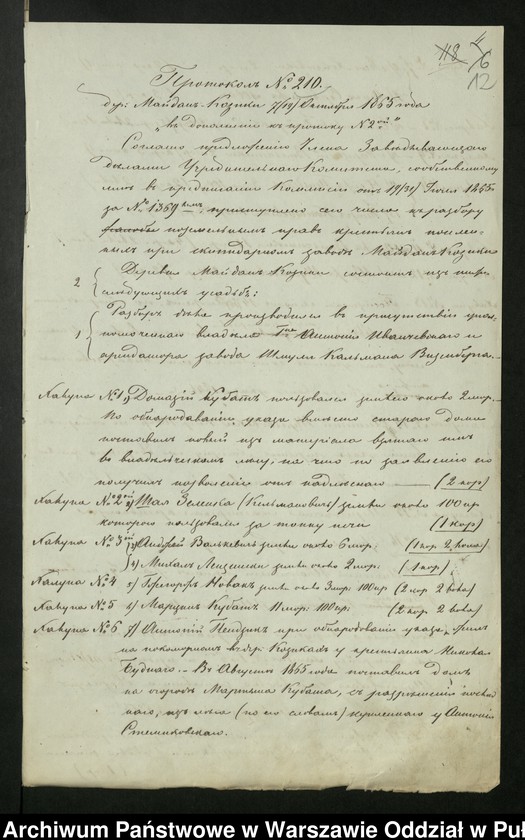 118
6
12
Протоколъ № 210.
дер: Майданъ-Козики 7/19 Октября 1865 года
„въ дополненіе къ протоку № 2ой"
Согласно предложенію Члена Завѣдывающаго
дѣлами Учредительнаго Комитета,
въ предписаніи Коммисіи отъ 19/31 1865.
за № 1369 приступлено сего числа къ разбору
поземельныхъ правъ крестьянъ поселен-
ныхъ при скипидарномъ заводѣ Майданъ Козики
2 Деревня Майданъ Козики состоитъ изъ
слѣдующихъ усадьбъ:
1 Разборъ былъ производился въ присутствіи упол-
номоченнаго владѣльца Гна Антонія Иванчевскаго и
арендатора завода Шмуля Кальмана Визенберга.
Халупа № 1, 1) Домазій Кубатъ пользовался землею около 2 мор.
По обнародованіи указа вмѣсто стараго дома
поставилъ новый изъ матеріала взятаго имъ
въ владѣльческомъ лѣсу, на что по заявленію его
получилъ позволеніе отъ надлѣснаго — (2 кор)
Халупа № 2й 2) Шая Зелинка (Кельмановичъ) земли около 100 пр
которою пользовался за топку печи (1 кор)
Халупа № 3й 3) Андрей земли около 6 мор. (1 кор. 2 вола).
4) Михалъ Лещинскій земли около 2 мор. (1 кор)
Халупа № 4 5) Григоръ Новакъ земли около 3 мор. 100 пр (2 кор 2 вола)
Халупа № 5 6) Марцинъ Кубатъ 11 мор. 100 пр. (2 кор. 2 вола)
Халупа № 6 7) Антоній Пендзикъ при обнародованіи указа жилъ
на покоморномъ въ дер. Козикахъ у крестьянина Никова
Буднаго. — Въ Августѣ 1865 года поставилъ домъ
на огородѣ Мартына Кубата, съ разрѣшенія
наго, изъ лѣса (по его словамъ) купленнаго у Антонія
Стельмаковскаго.
Archiwum Państwowe w Warszawie Oddział w Puł